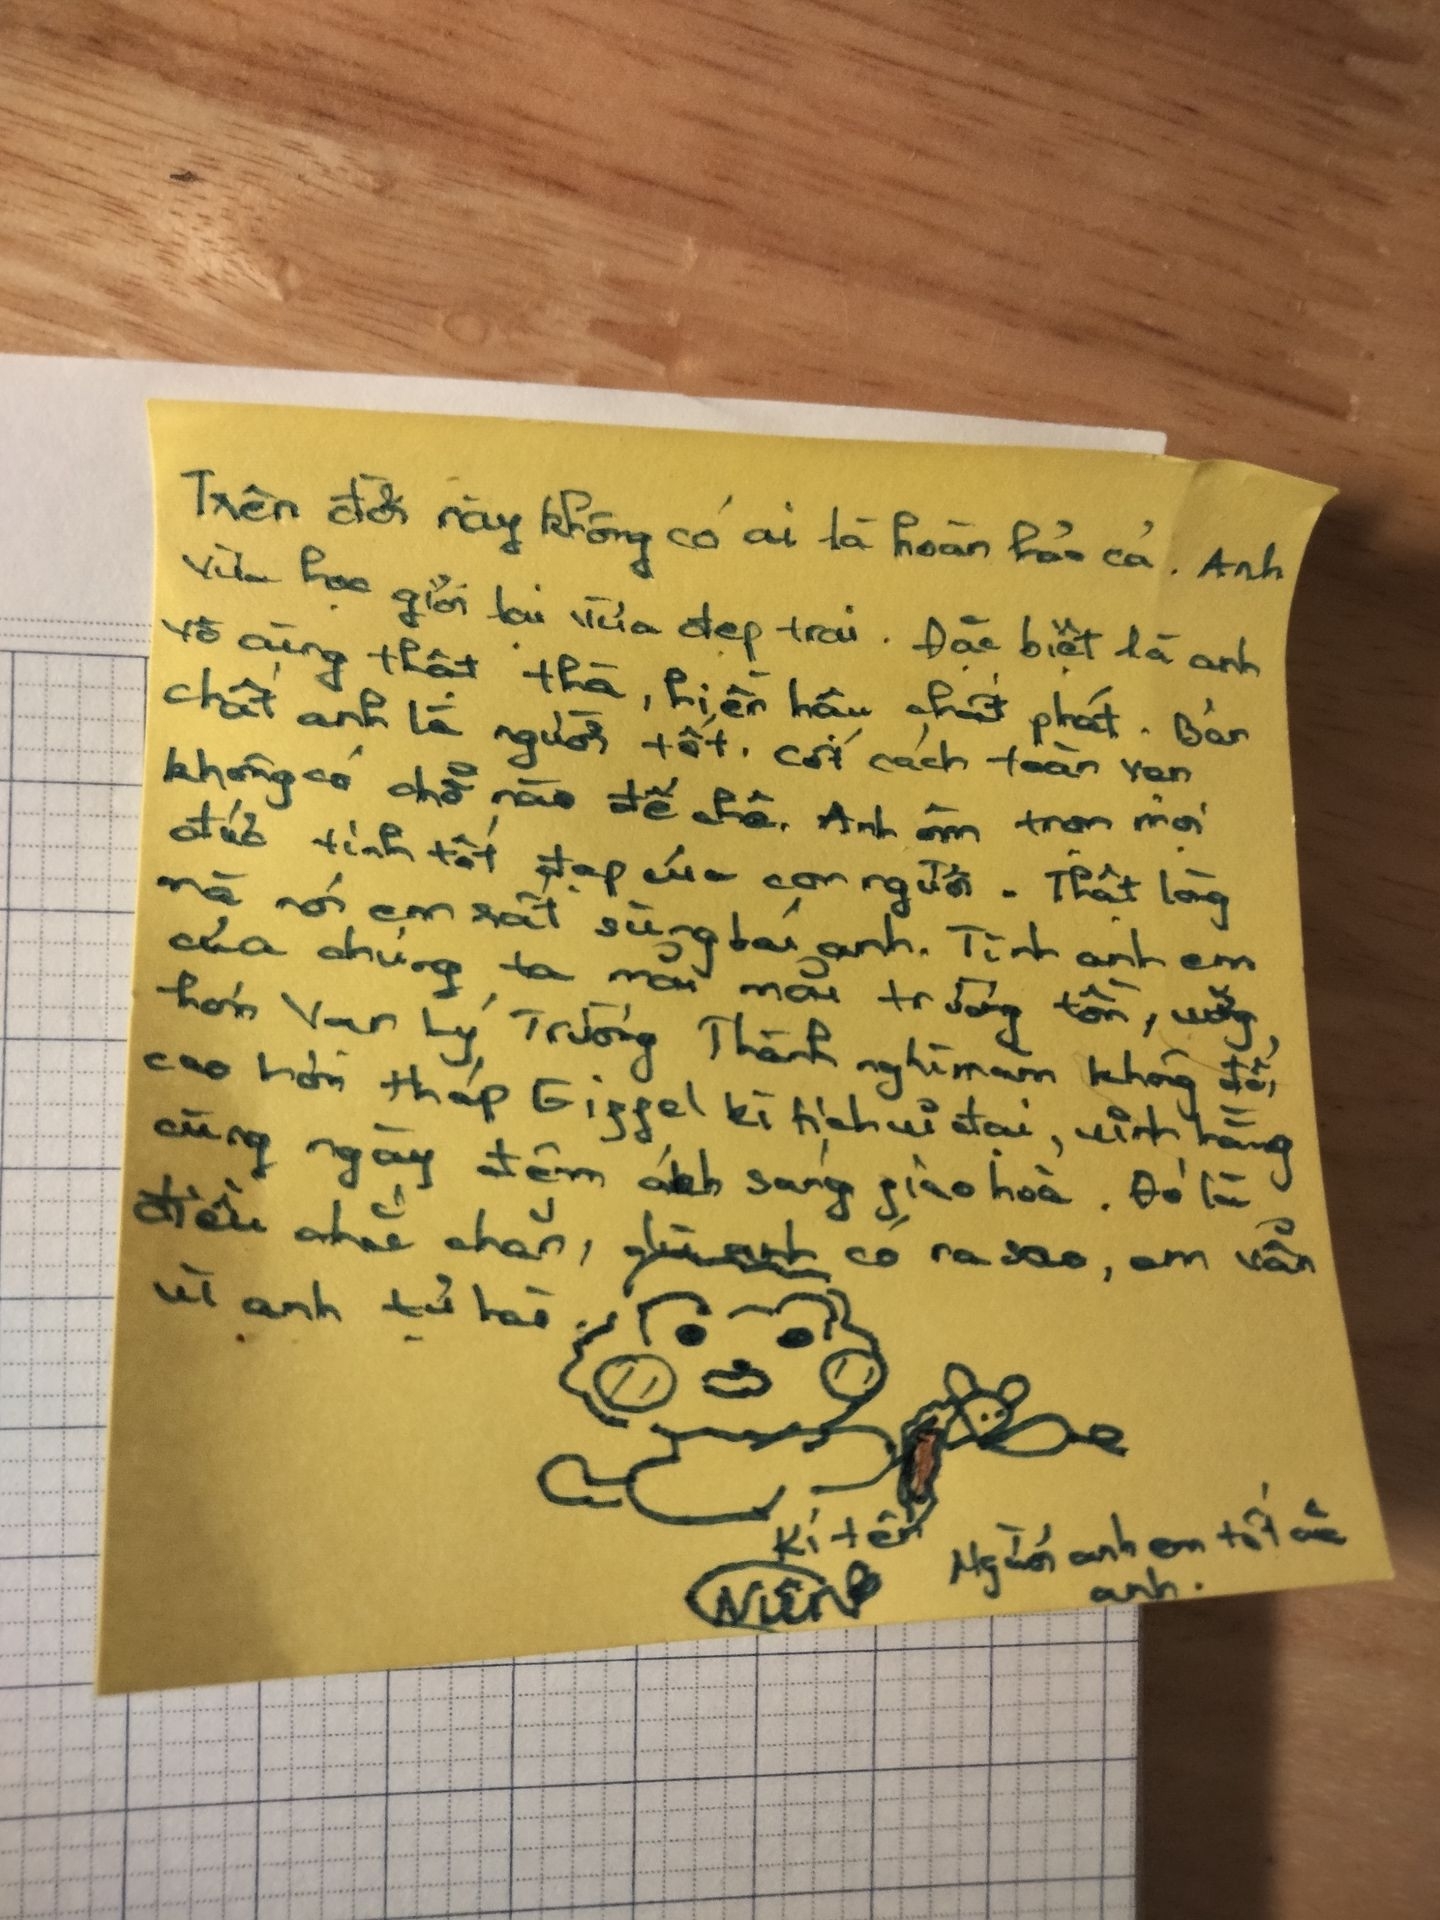 Trên đời này không có ai là hoàn hảo cả. Anh
vừa học giỏi lại vừa đẹp trai. Đặc biệt là anh
vô cùng thật thà, hiền hậu chất phát. Bản
chất anh là người tốt. cốt cách toàn vẹn
không có chỗ nào để chê. Anh ôm trọn mọi
đức tính tốt đẹp của con người. Thật lòng
mà nói em rất sùng bái anh. Tình anh em
của chúng ta mãi mãi trường tồn, vững
hơn Vạn Lý Trường Thành nghìn năm không đổi,
cao hơn tháp Eiffel kì tích vĩ đại, vĩnh hằng
cùng ngày đêm ánh sáng giao hoà. Đó là
điều chắc chắn, dù anh có ra sao, em vẫn
vì anh tự hào.
Kí tên
Người anh em tốt của
anh.